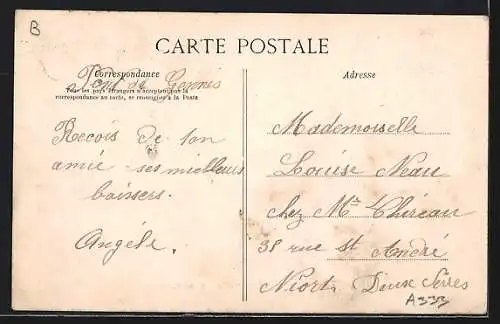 B
CARTE POSTALE
Correspondance
Pont de Gennes
Tous les pays étrangers n'acceptent pas la
correspondance au recto, se renseigner à la Poste
Recois de ton
amie ses mielleurs
baissers.
Angéle.
Adresse
Mademoiselle
Louise Neau
chez Mr Chereau
38 rue st André
Niort. Deux Sèvres
A333